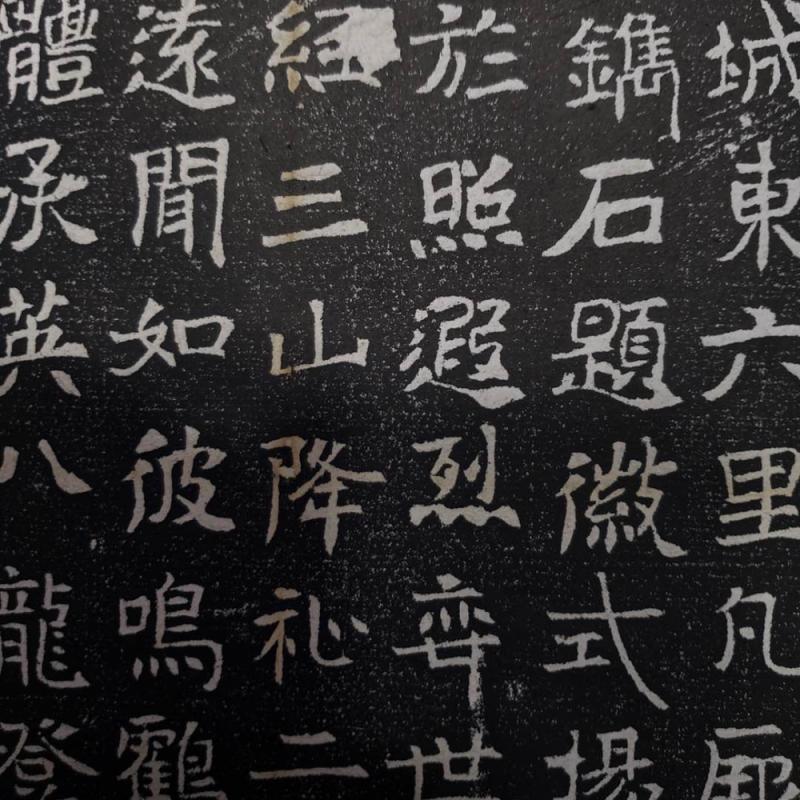 城東六里凡厥
鐫石題徽式揚
於照遐烈弈世
經三山降祉二
遠聞如彼鳴鶴
體承英八龍登